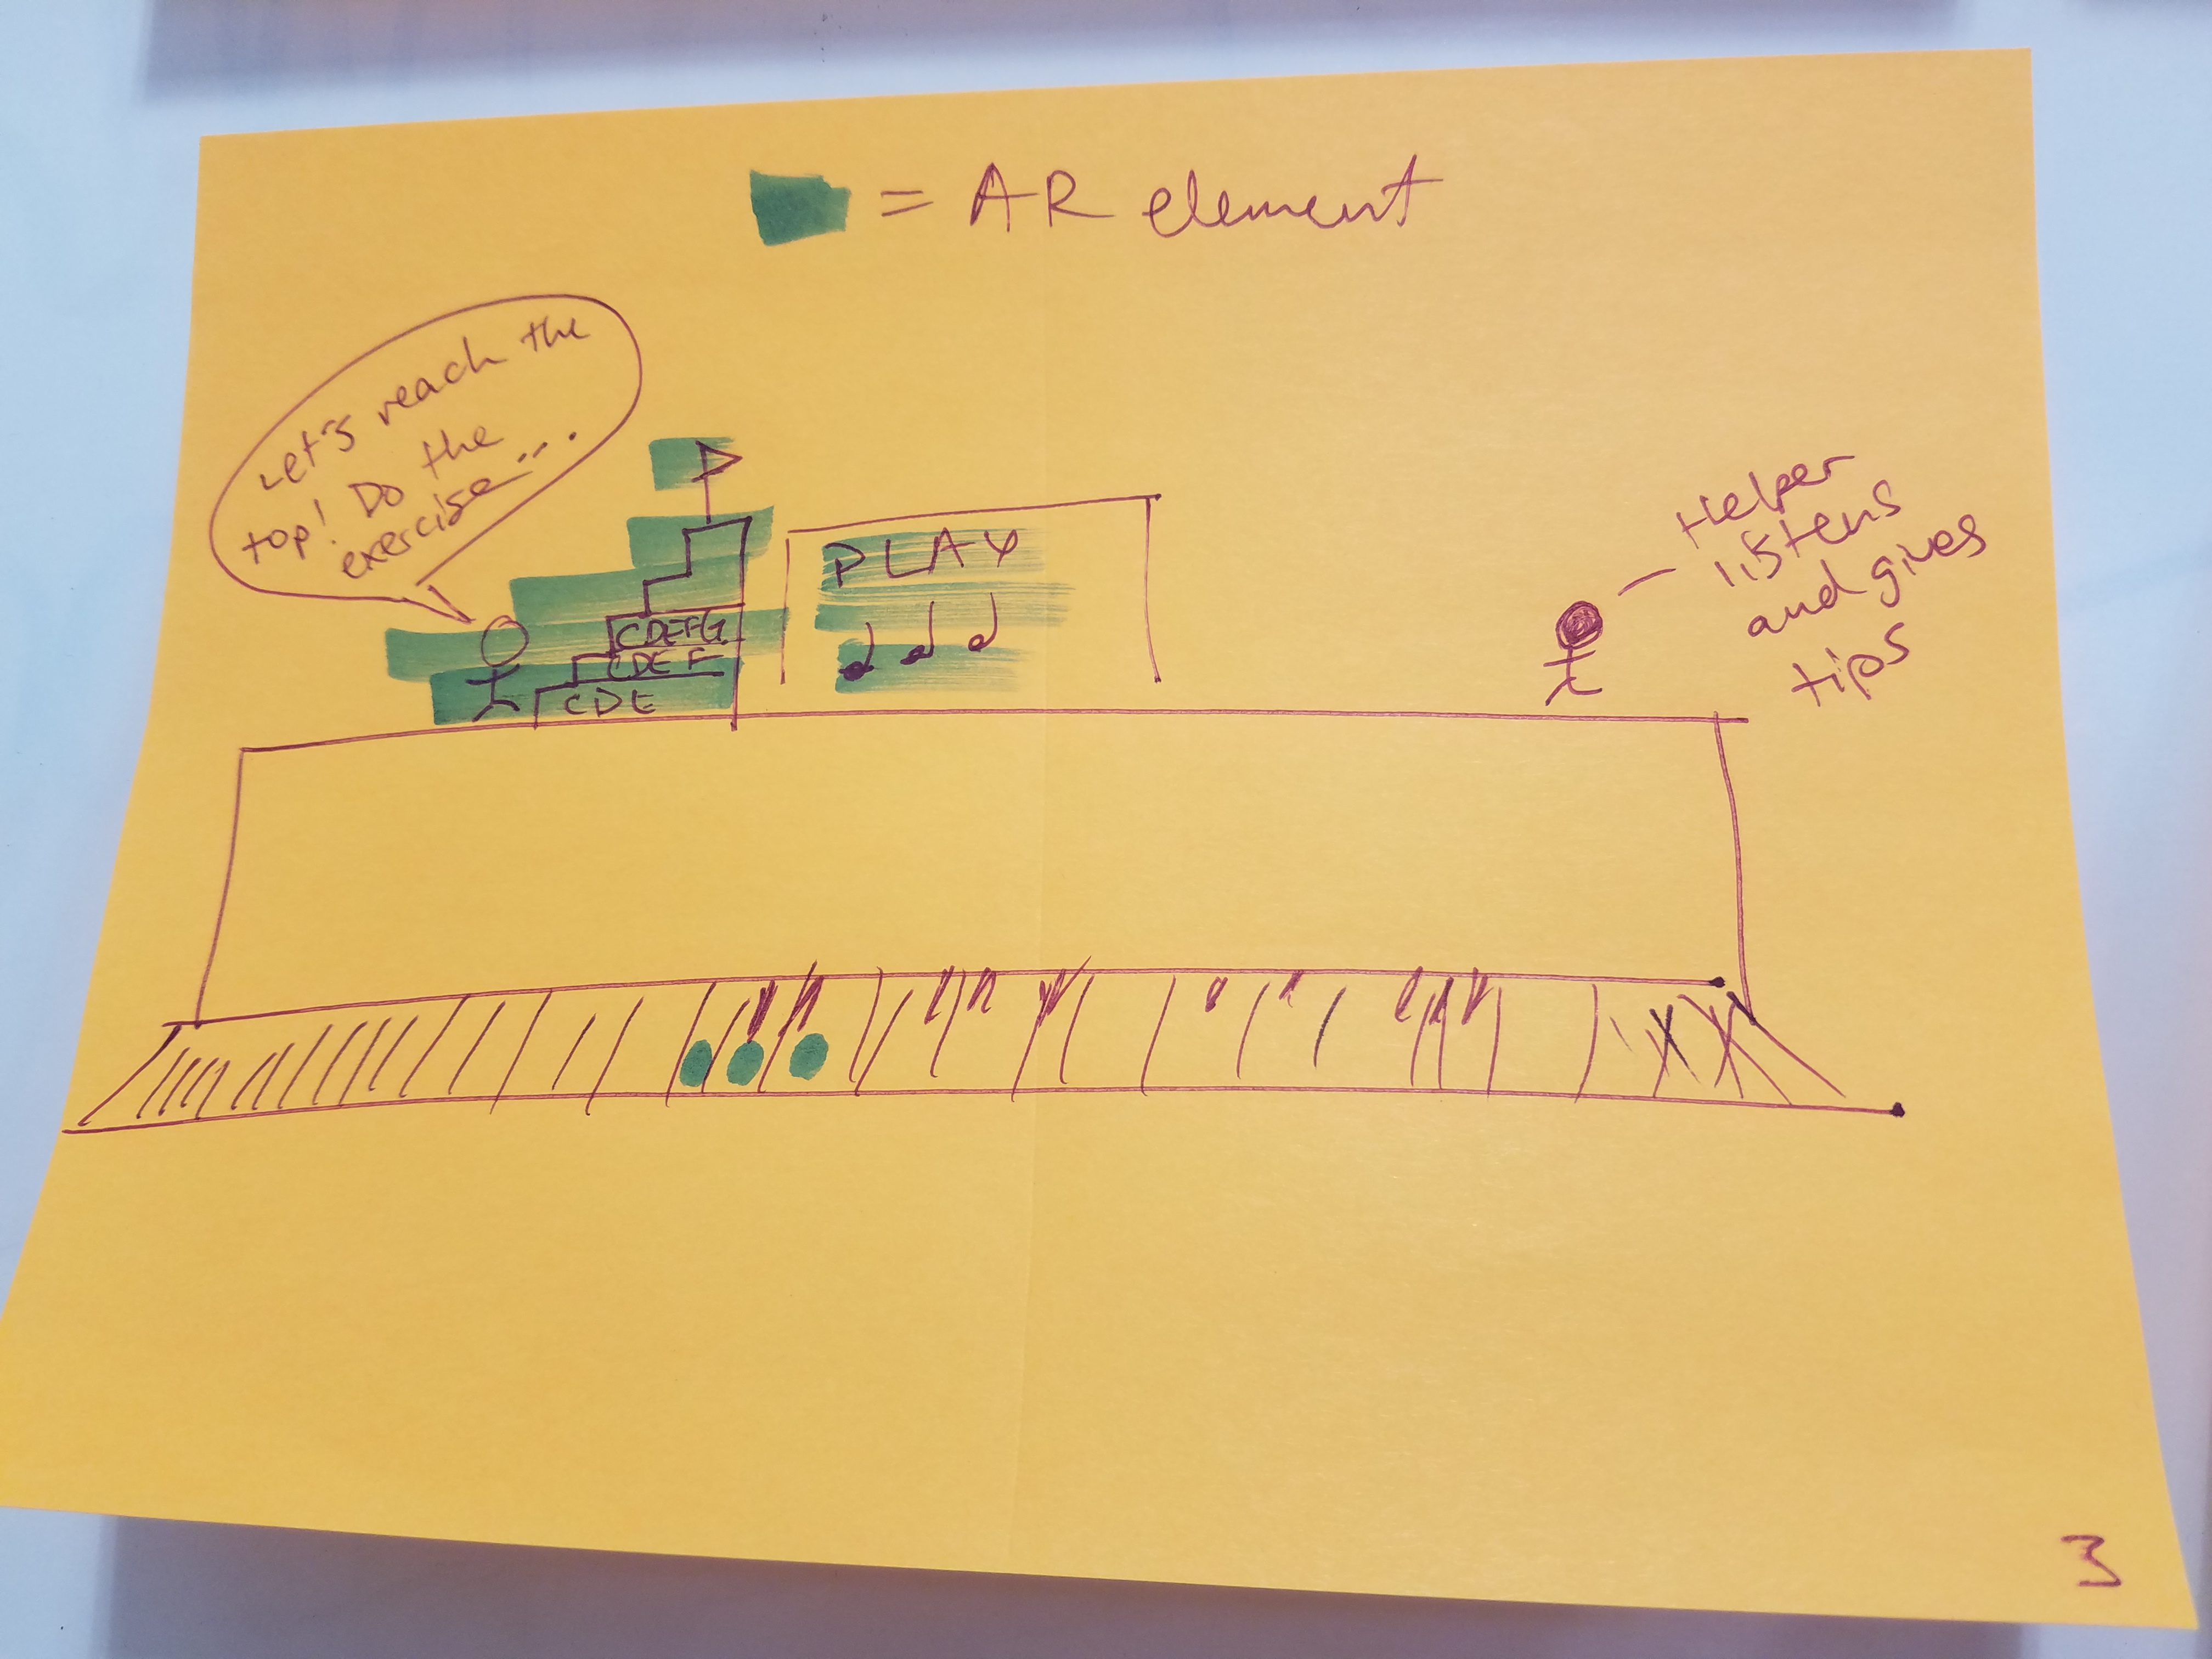 = AR element
Let's reach the
top! Do the
exercise...
PLAY
CDEFG
CDEF
CDE
Helper
listens
and gives
tips
3